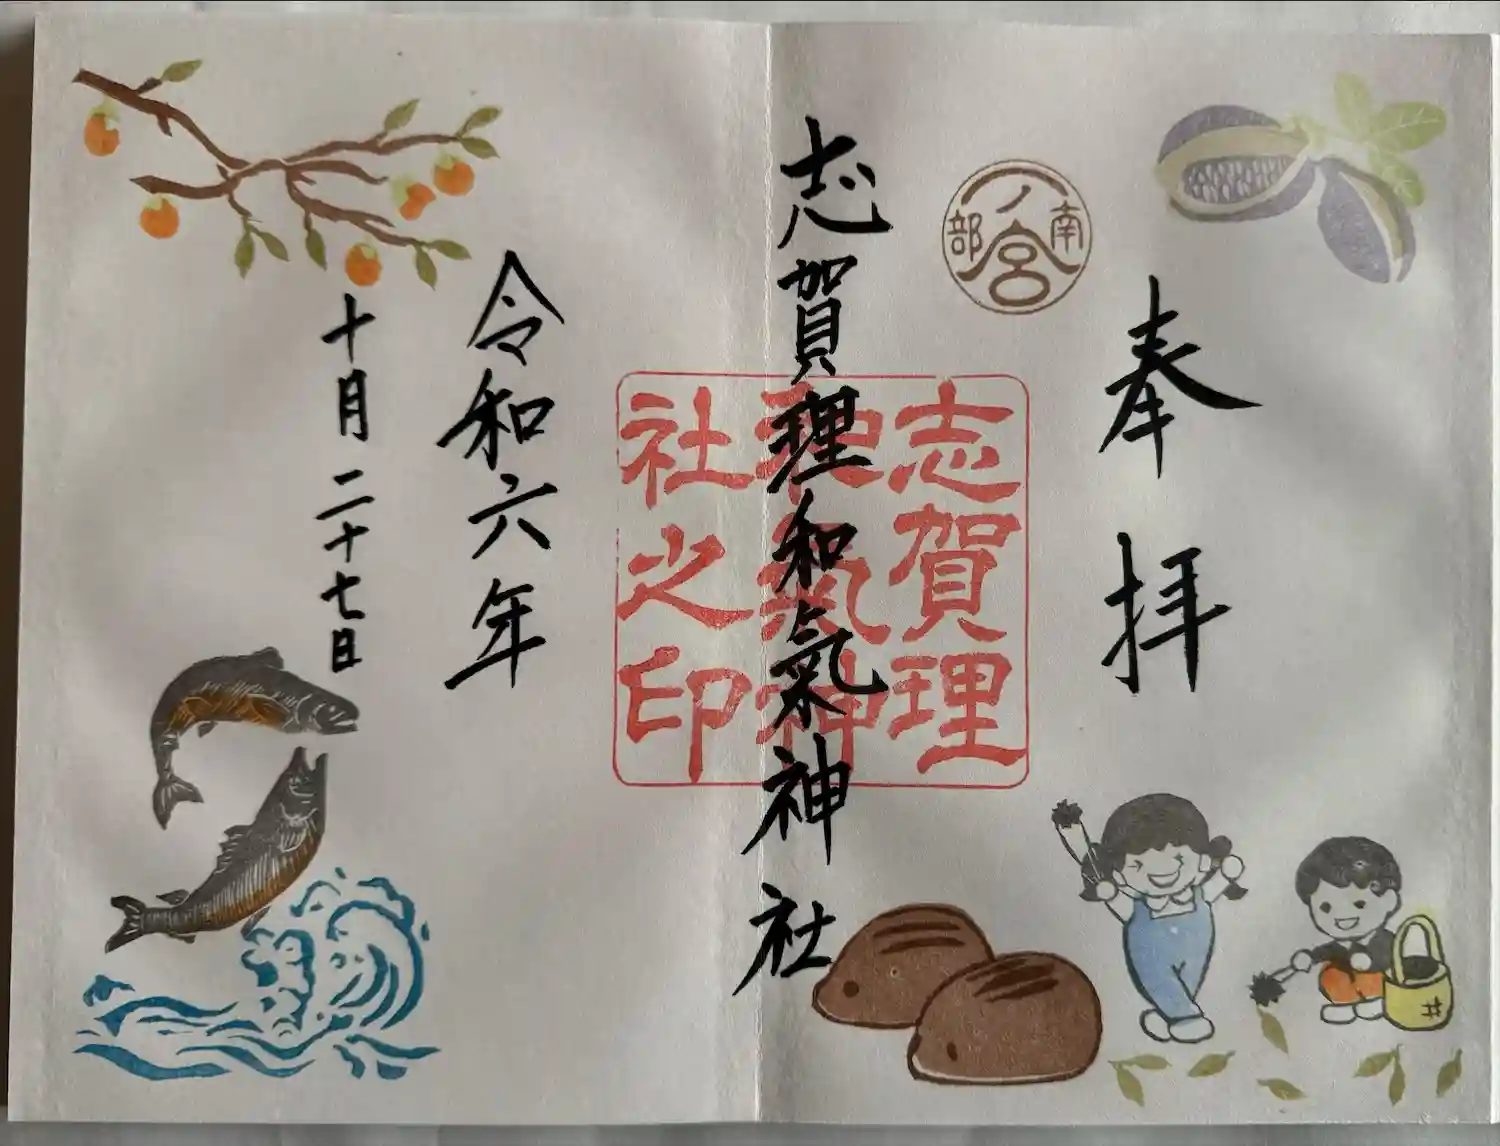 奉拝
南部
一ノ宮
志賀理和氣神社
志賀理
和氣神
社之印
令和六年
十月二十七日
井